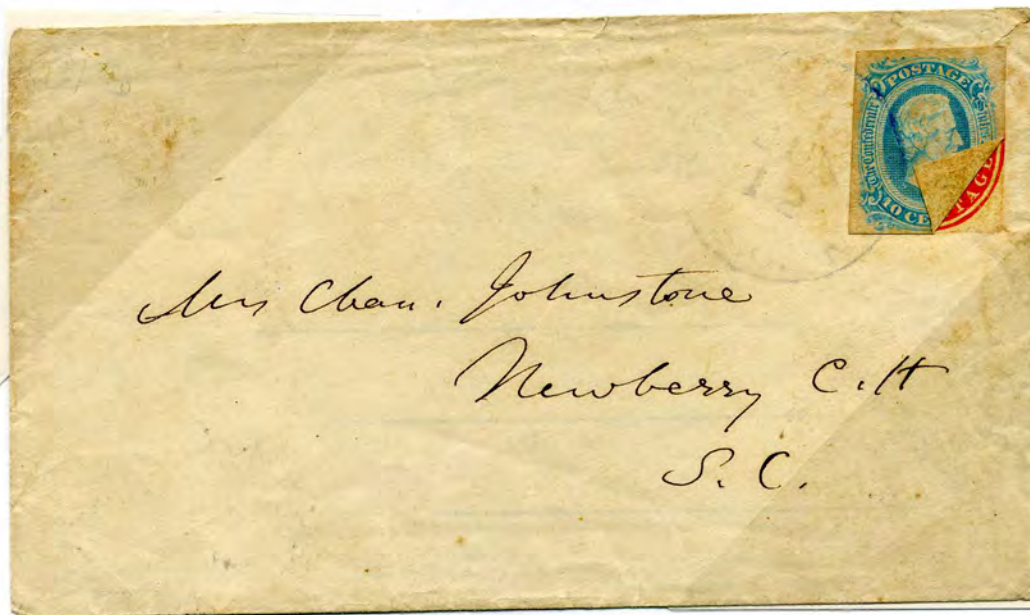 POSTAGE
The Confederate States
10 CE
TAGE
Mrs Chan. Johnstone
Newberry C. H
S. C.